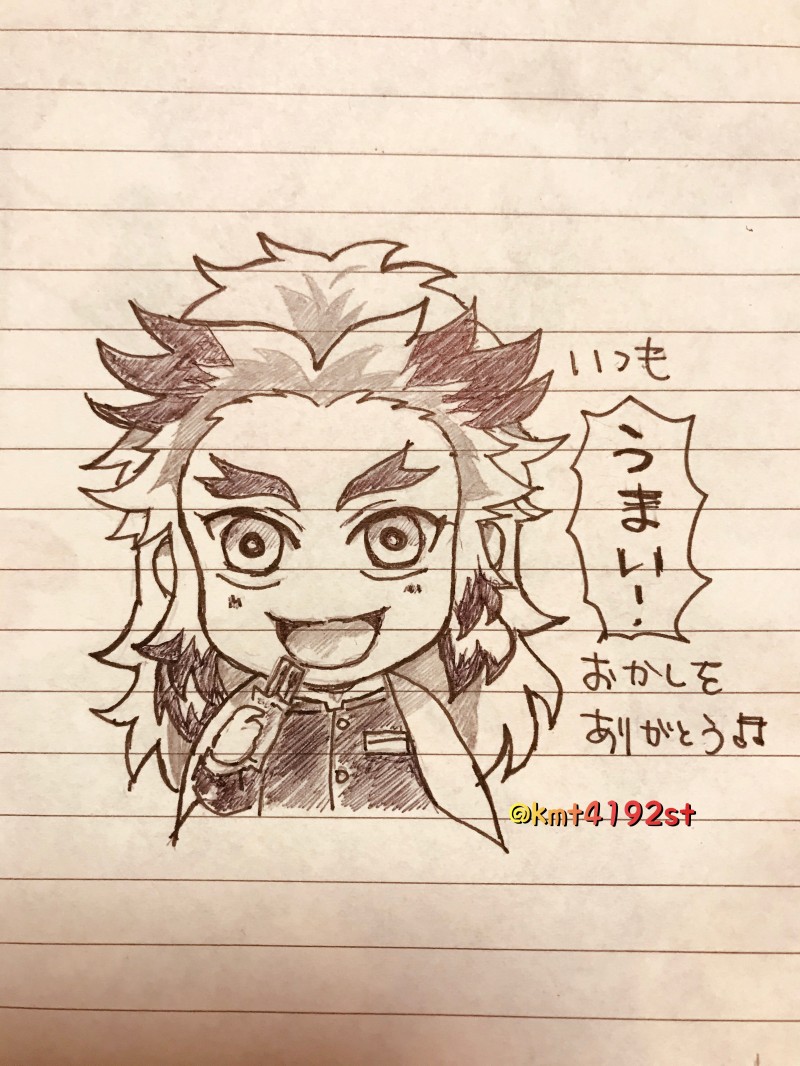 いつも
うまい!
おかしを
ありがとう♫
@kmt4192st